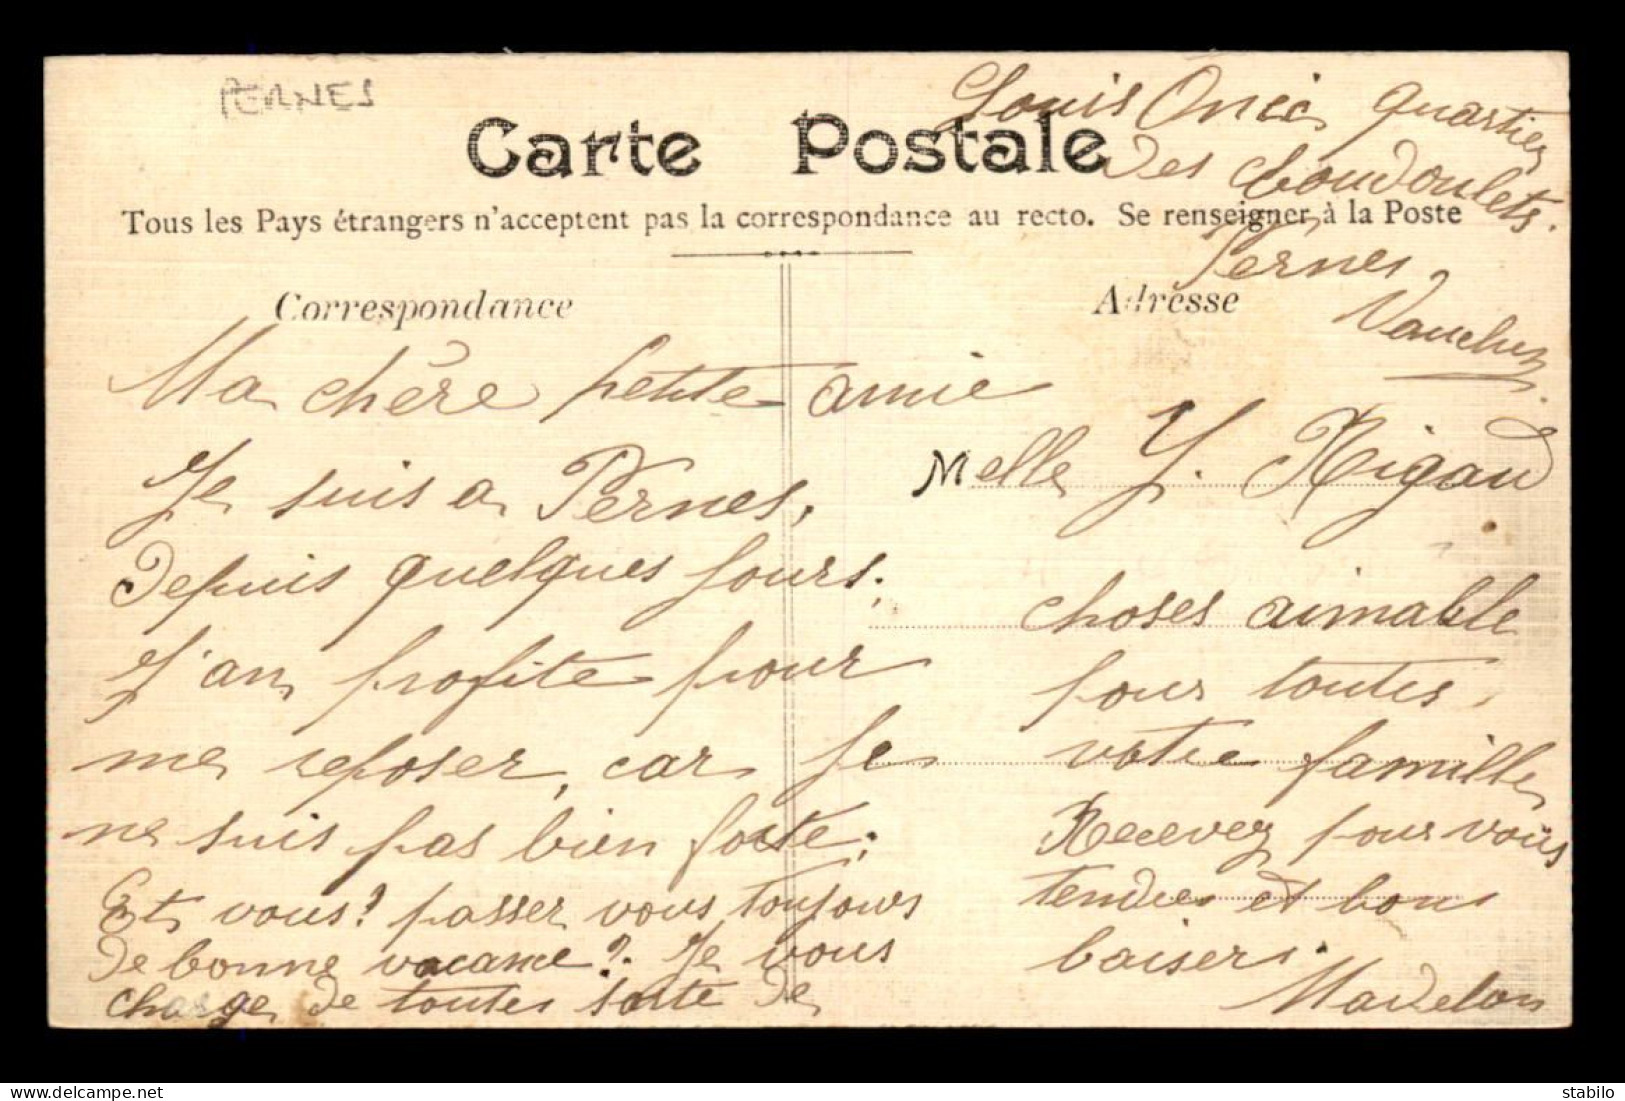 PERNES
Louis Onic quartier
des boudoulets.
Pernes
Vaucluse
Carte Postale
Tous les Pays étrangers n'acceptent pas la correspondance au recto. Se renseigner à la Poste
Correspondance
Adresse
Ma chère petite amie
Je suis a Pernes,
depuis quelques jours,
J'an profite pour
me reposer, car je
ne suis pas bien forte;
Et vous? passer vous toujours
de bonne vacance? Je vous
charge de toutes sorte de
Melle Y. Rigaud
choses aimable
pour toutes
votre famille
Recevez pour vous
tendres et bons
baisers.
Madelon
stabilo